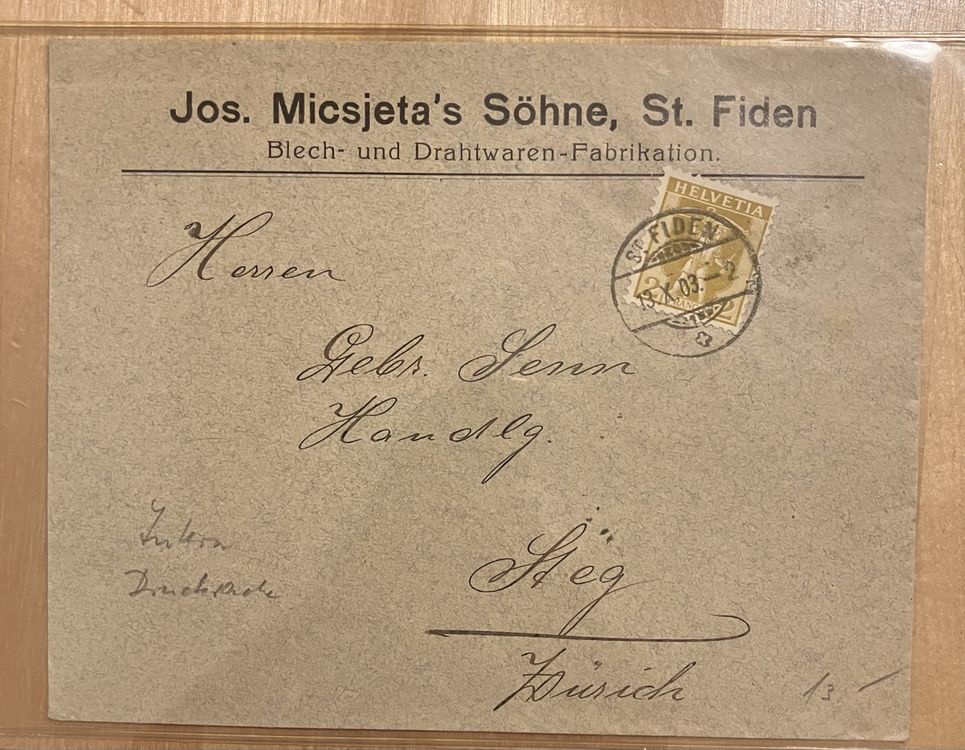 Jos. Micsjeta's Söhne, St. Fiden
Blech- und Drahtwaren-Fabrikation.
HELVETIA
ST. FIDEN
13. X. 03. – 2
2 2
Herren
Gebr. Senn
Handlg.
Steg
Zürich
Intern
Drucksache
13 –